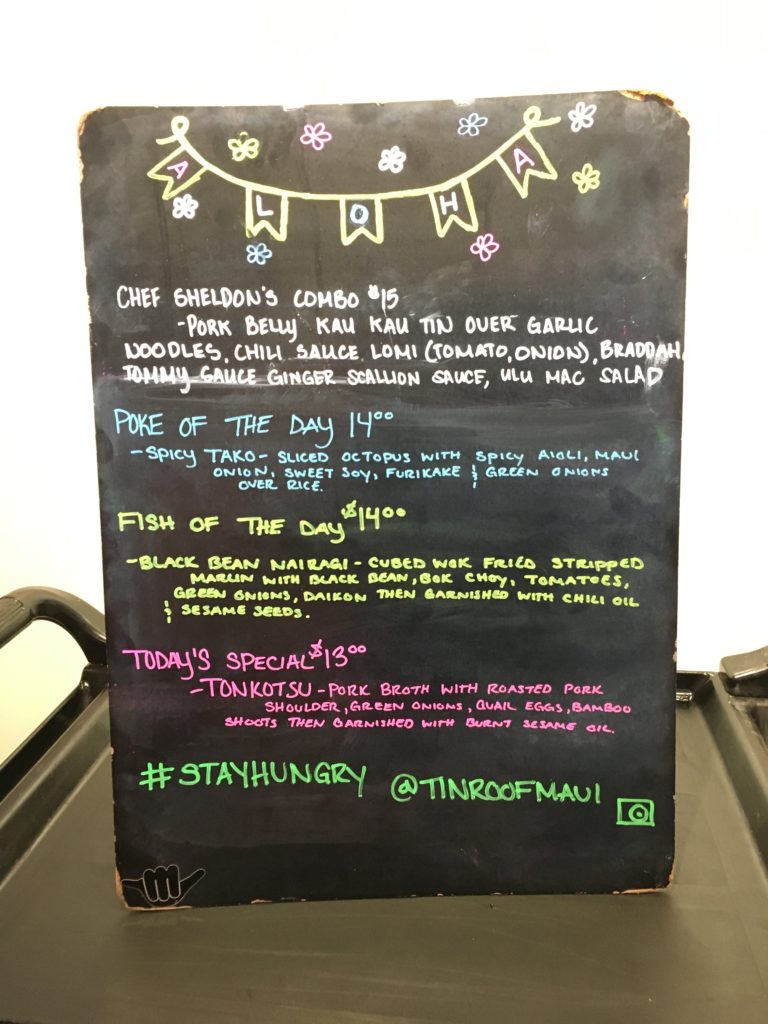 ALOHA
CHEF SHELDON'S COMBO $15
-PORK BELLY KAU KAU TIN OVER GARLIC
NOODLES, CHILI SAUCE, LOMI (TOMATO, ONION), BRADDAH
TOMMY SAUCE GINGER SCALLION SAUCE, ULU MAC SALAD
POKE OF THE DAY 14⁰⁰
-SPICY TAKO- SLICED OCTOPUS WITH SPICY AIOLI, MAUI
ONION, SWEET SOY, FURIKAKE & GREEN ONIONS
OVER RICE.
FISH OF THE DAY $14⁰⁰
-BLACK BEAN NAIRAGI - CUBED WOK FRIED STRIPPED
MARLIN WITH BLACK BEAN, BOK CHOY, TOMATOES,
GREEN ONIONS, DAIKON THEN GARNISHED WITH CHILI OIL
& SESAME SEEDS.
TODAY'S SPECIAL $13⁰⁰
-TONKOTSU - PORK BROTH WITH ROASTED PORK
SHOULDER, GREEN ONIONS, QUAIL EGGS, BAMBOO
SHOOTS THEN GARNISHED WITH BURNT SESAME OIL.
#STAYHUNGRY @TINROOFMAUI